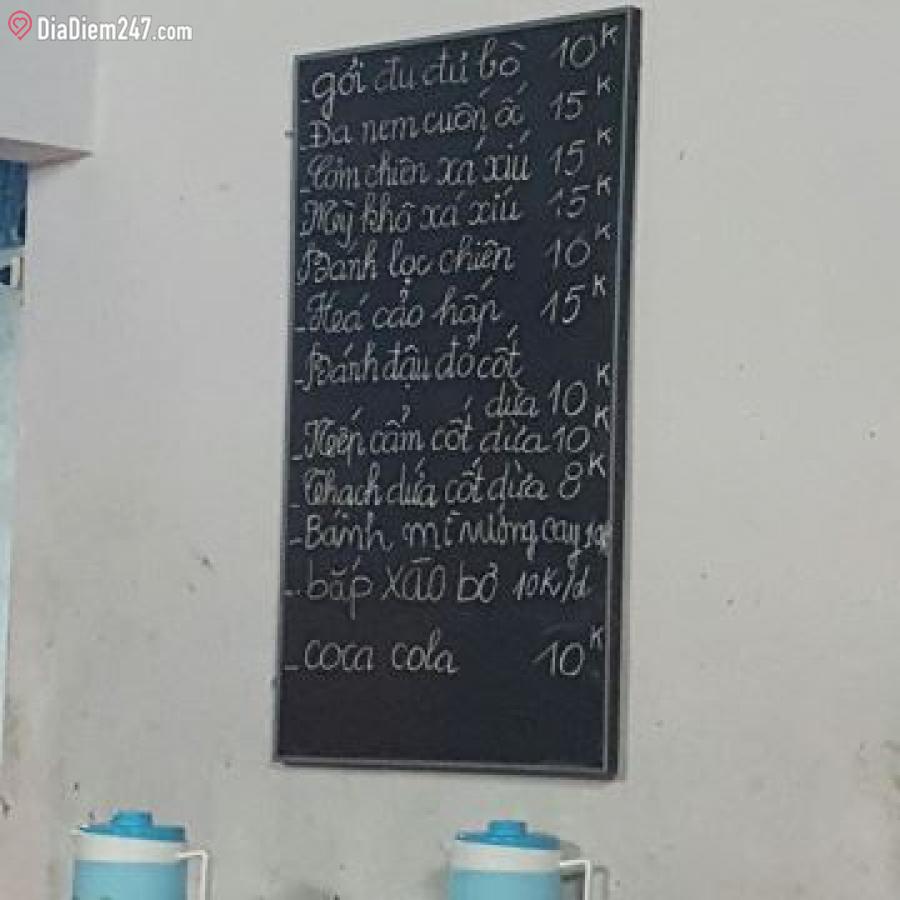 DiaDiem247.com
- gỏi đu đủ bò 10K
- Da nem cuốn ốc 15K
- Cơm chiên xá xíu 15K
- Mỳ khô xá xíu 15K
- Bánh lọc chiên 10K
- Há cảo hấp 15K
- Bánh đậu đỏ cốt
dừa 10K
- Nếp cẩm cốt dừa 10K
- Thạch dứa cốt dừa 8K
- Bánh mì nướng cay 10K
- bắp xào bơ 10K/d
- coca cola 10K